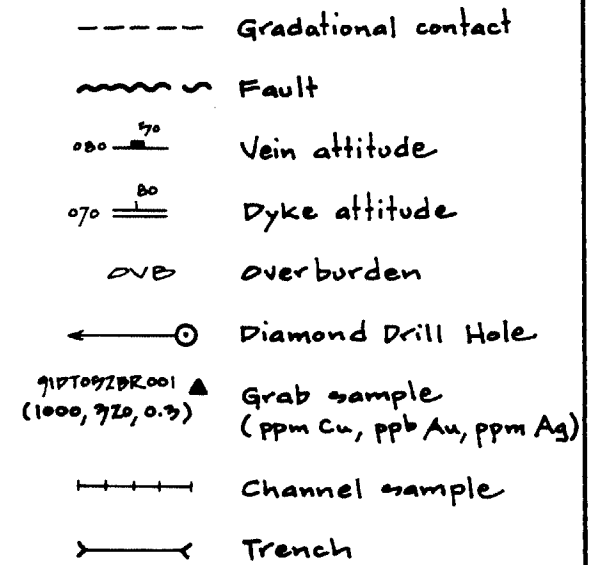 Gradational contact
Fault
080 70 Vein attitude
070 80 Dyke attitude
OVB Overburden
Diamond Drill Hole
Grab sample
(1000, 320, 0.3) (ppm Cu, ppb Au, ppm Ag)
Channel sample
Trench